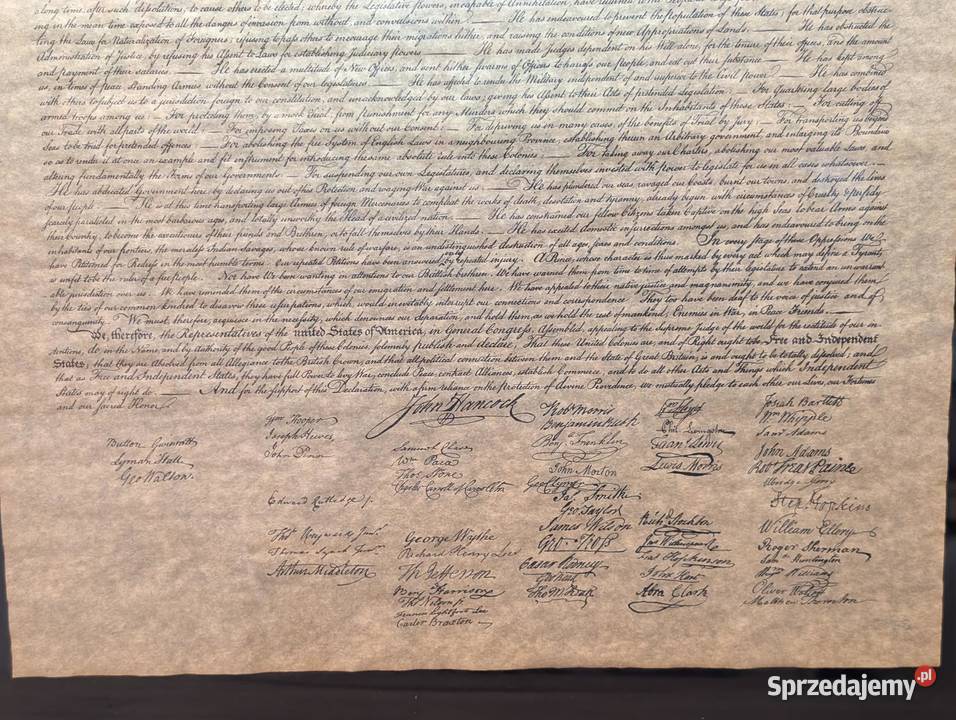 long time, after such dissolutions, to cause others to be elected; whereby the Legislative powers, incapable of Annihilation, have returned to the People
ing in the mean time exposed to all the dangers of invasion from without, and convulsions within. — He has endeavoured to prevent the population of these States; for that purpose obstruc-
ting the Laws for Naturalization of Foreigners; refusing to pass others to encourage their migrations hither, and raising the conditions of new Appropriations of Lands. — He has obstructed the
Administration of Justice, by refusing his Assent to Laws for establishing Judiciary powers. — He has made Judges dependent on his Will alone, for the tenure of their offices, and the amount
and payment of their salaries. — He has erected a multitude of New Offices, and sent hither swarms of Officers to harrass our people, and eat out their substance. — He has kept among
us, in times of peace, Standing Armies without the Consent of our legislatures. — He has affected to render the Military independent of and superior to the Civil power. — He has combined
with others to subject us to a jurisdiction foreign to our constitution, and unacknowledged by our laws; giving his Assent to their Acts of pretended Legislation: — For Quartering large bodies of
armed troops among us: — For protecting them, by a mock Trial, from punishment for any Murders which they should commit on the Inhabitants of these States: — For cutting off
our Trade with all parts of the world: — For imposing Taxes on us without our Consent: — For depriving us in many cases, of the benefits of Trial by jury: — For transporting us beyond
Seas to be tried for pretended offences: — For abolishing the free System of English Laws in a neighbouring Province, establishing therein an Arbitrary government, and enlarging its Boundaries
so as to render it at once an example and fit instrument for introducing the same absolute rule into these Colonies: — For taking away our Charters, abolishing our most valuable Laws, and
altering fundamentally the Forms of our Governments: — For suspending our own Legislatures, and declaring themselves invested with power to legislate for us in all cases whatsoever. —
He has abdicated Government here, by declaring us out of his Protection and waging War against us. — He has plundered our seas, ravaged our Coasts, burnt our towns, and destroyed the lives
of our people. — He is at this time transporting large Armies of foreign Mercenaries to compleat the works of death, desolation and tyranny, already begun with circumstances of Cruelty & perfidy
scarcely paralleled in the most barbarous ages, and totally unworthy the Head of a civilized nation. — He has constrained our fellow Citizens taken Captive on the high Seas to bear Arms against
their Country, to become the executioners of their friends and Brethren, or to fall themselves by their Hands. — He has excited domestic insurrections amongst us, and has endeavoured to bring on the
inhabitants of our frontiers, the merciless Indian Savages, whose known rule of warfare, is an undistinguished destruction of all ages, sexes and conditions. In every stage of these Oppressions We
have Petitioned for Redress in the most humble terms: Our repeated Petitions have been answered only by repeated injury. A Prince, whose character is thus marked by every act which may define a Tyrant,
is unfit to be the ruler of a free people. Nor have We been wanting in attentions to our Brittish brethren. We have warned them from time to time of attempts by their legislature to extend an unwarrant-
able jurisdiction over us. We have reminded them of the circumstances of our emigration and settlement here. We have appealed to their native justice and magnanimity, and we have conjured them
by the ties of our common kindred to disavow these usurpations, which, would inevitably interrupt our connections and correspondence. They too have been deaf to the voice of justice and of
consanguinity. We must, therefore, acquiesce in the necessity, which denounces our Separation, and hold them, as we hold the rest of mankind, Enemies in War, in Peace Friends. —
We, therefore, the Representatives of the united States of America, in General Congress, Assembled, appealing to the Supreme Judge of the world for the rectitude of our in-
tentions, do, in the Name, and by Authority of the good People of these Colonies, solemnly publish and declare, That these United Colonies are, and of Right ought to be Free and Independent
States; that they are Absolved from all Allegiance to the British Crown, and that all political connection between them and the State of Great Britain, is and ought to be totally dissolved; and
that as Free and Independent States, they have full Power to levy War, conclude Peace, contract Alliances, establish Commerce, and to do all other Acts and Things which Independent
States may of right do. — And for the support of this Declaration, with a firm reliance on the protection of divine Providence, we mutually pledge to each other our Lives, our Fortunes
and our sacred Honor.
Button Gwinnett
Lyman Hall
Geo Walton.
Wm Hooper
Joseph Hewes,
John Penn
Edward Rutledge.
Thos Heyward Junr.
Thomas Lynch Junr.
Arthur Middleton
John Hancock
Samuel Chase
Wm Paca
Thos Stone
Charles Carroll of Carrollton
George Wythe
Richard Henry Lee
Th Jefferson
Benj Harrison
Thos Nelson jr.
Francis Lightfoot Lee
Carter Braxton
Robt Morris
Benjamin Rush
Benj. Franklin
John Morton
Geo Clymer
Jas. Smith
Geo. Taylor
James Wilson
Geo. Ross
Caesar Rodney
Geo Read
Tho M:Kean
Wm Floyd
Phil. Livingston
Frans. Lewis
Lewis Morris
Richd. Stockton
Jno Witherspoon
Fras. Hopkinson
John Hart
Abra Clark
Josiah Bartlett
Wm Whipple
Saml Adams
John Adams
Robt Treat Paine
Elbridge Gerry
Step. Hopkins
William Ellery
Roger Sherman
Saml Huntington
Wm Williams
Oliver Wolcott
Matthew Thornton
Sprzedajemy.pl